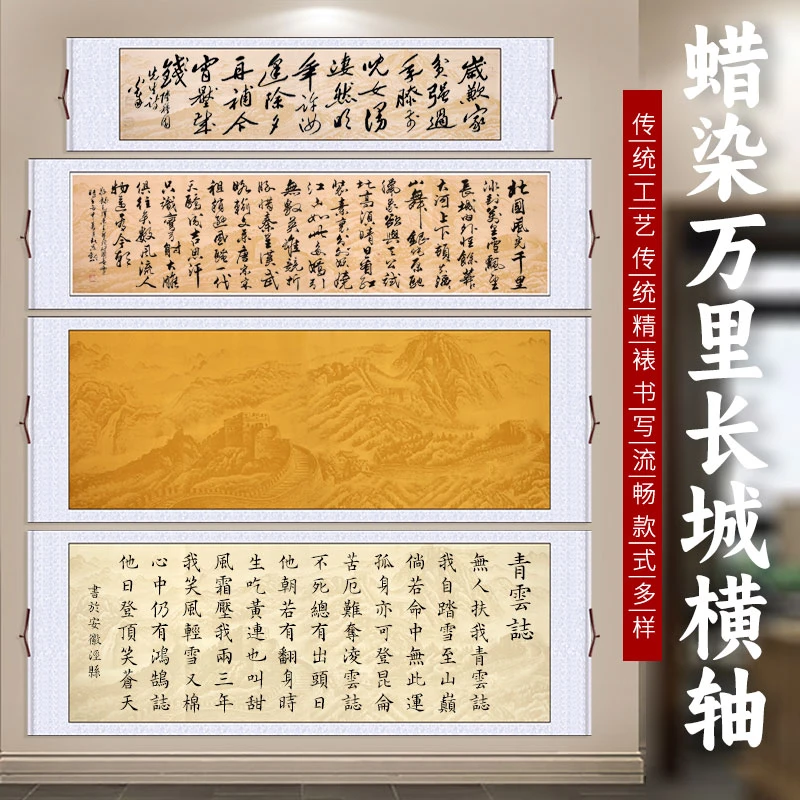 蜡染万里长城横轴
传统工艺 传统精裱 书写流畅 款式多样
歲歉家
贫强過
年膝前
児女漫
凄然明
年許汝
逢除夕
再補今
宵壓歲
錢
北國風光千里
冰封萬里雪飄望
長城内外惟餘莽
大河上下頓失滔
山舞銀蛇原馳
蠟象欲與天公試
比高須晴日看紅
裝素裹分外妖嬈
江山如此多嬌引
無數英雄競折
腰惜秦皇漢武
略輸文采唐宗宋
祖稍遜風騷一代
天驕成吉思汗
只識彎弓射大雕
俱往矣數風流人
物還看今朝
青雲誌
無人扶我青雲誌
我自踏雪至山巔
倘若命中無此運
孤身亦可登昆侖
苦厄難奪淩雲誌
不死總有出頭日
他朝若有翻身時
生吃黃連也叫甜
風霜壓我兩三年
我笑風輕雪又棉
心中仍有鴻鵠誌
他日登頂笑蒼天
書於安徽涇縣